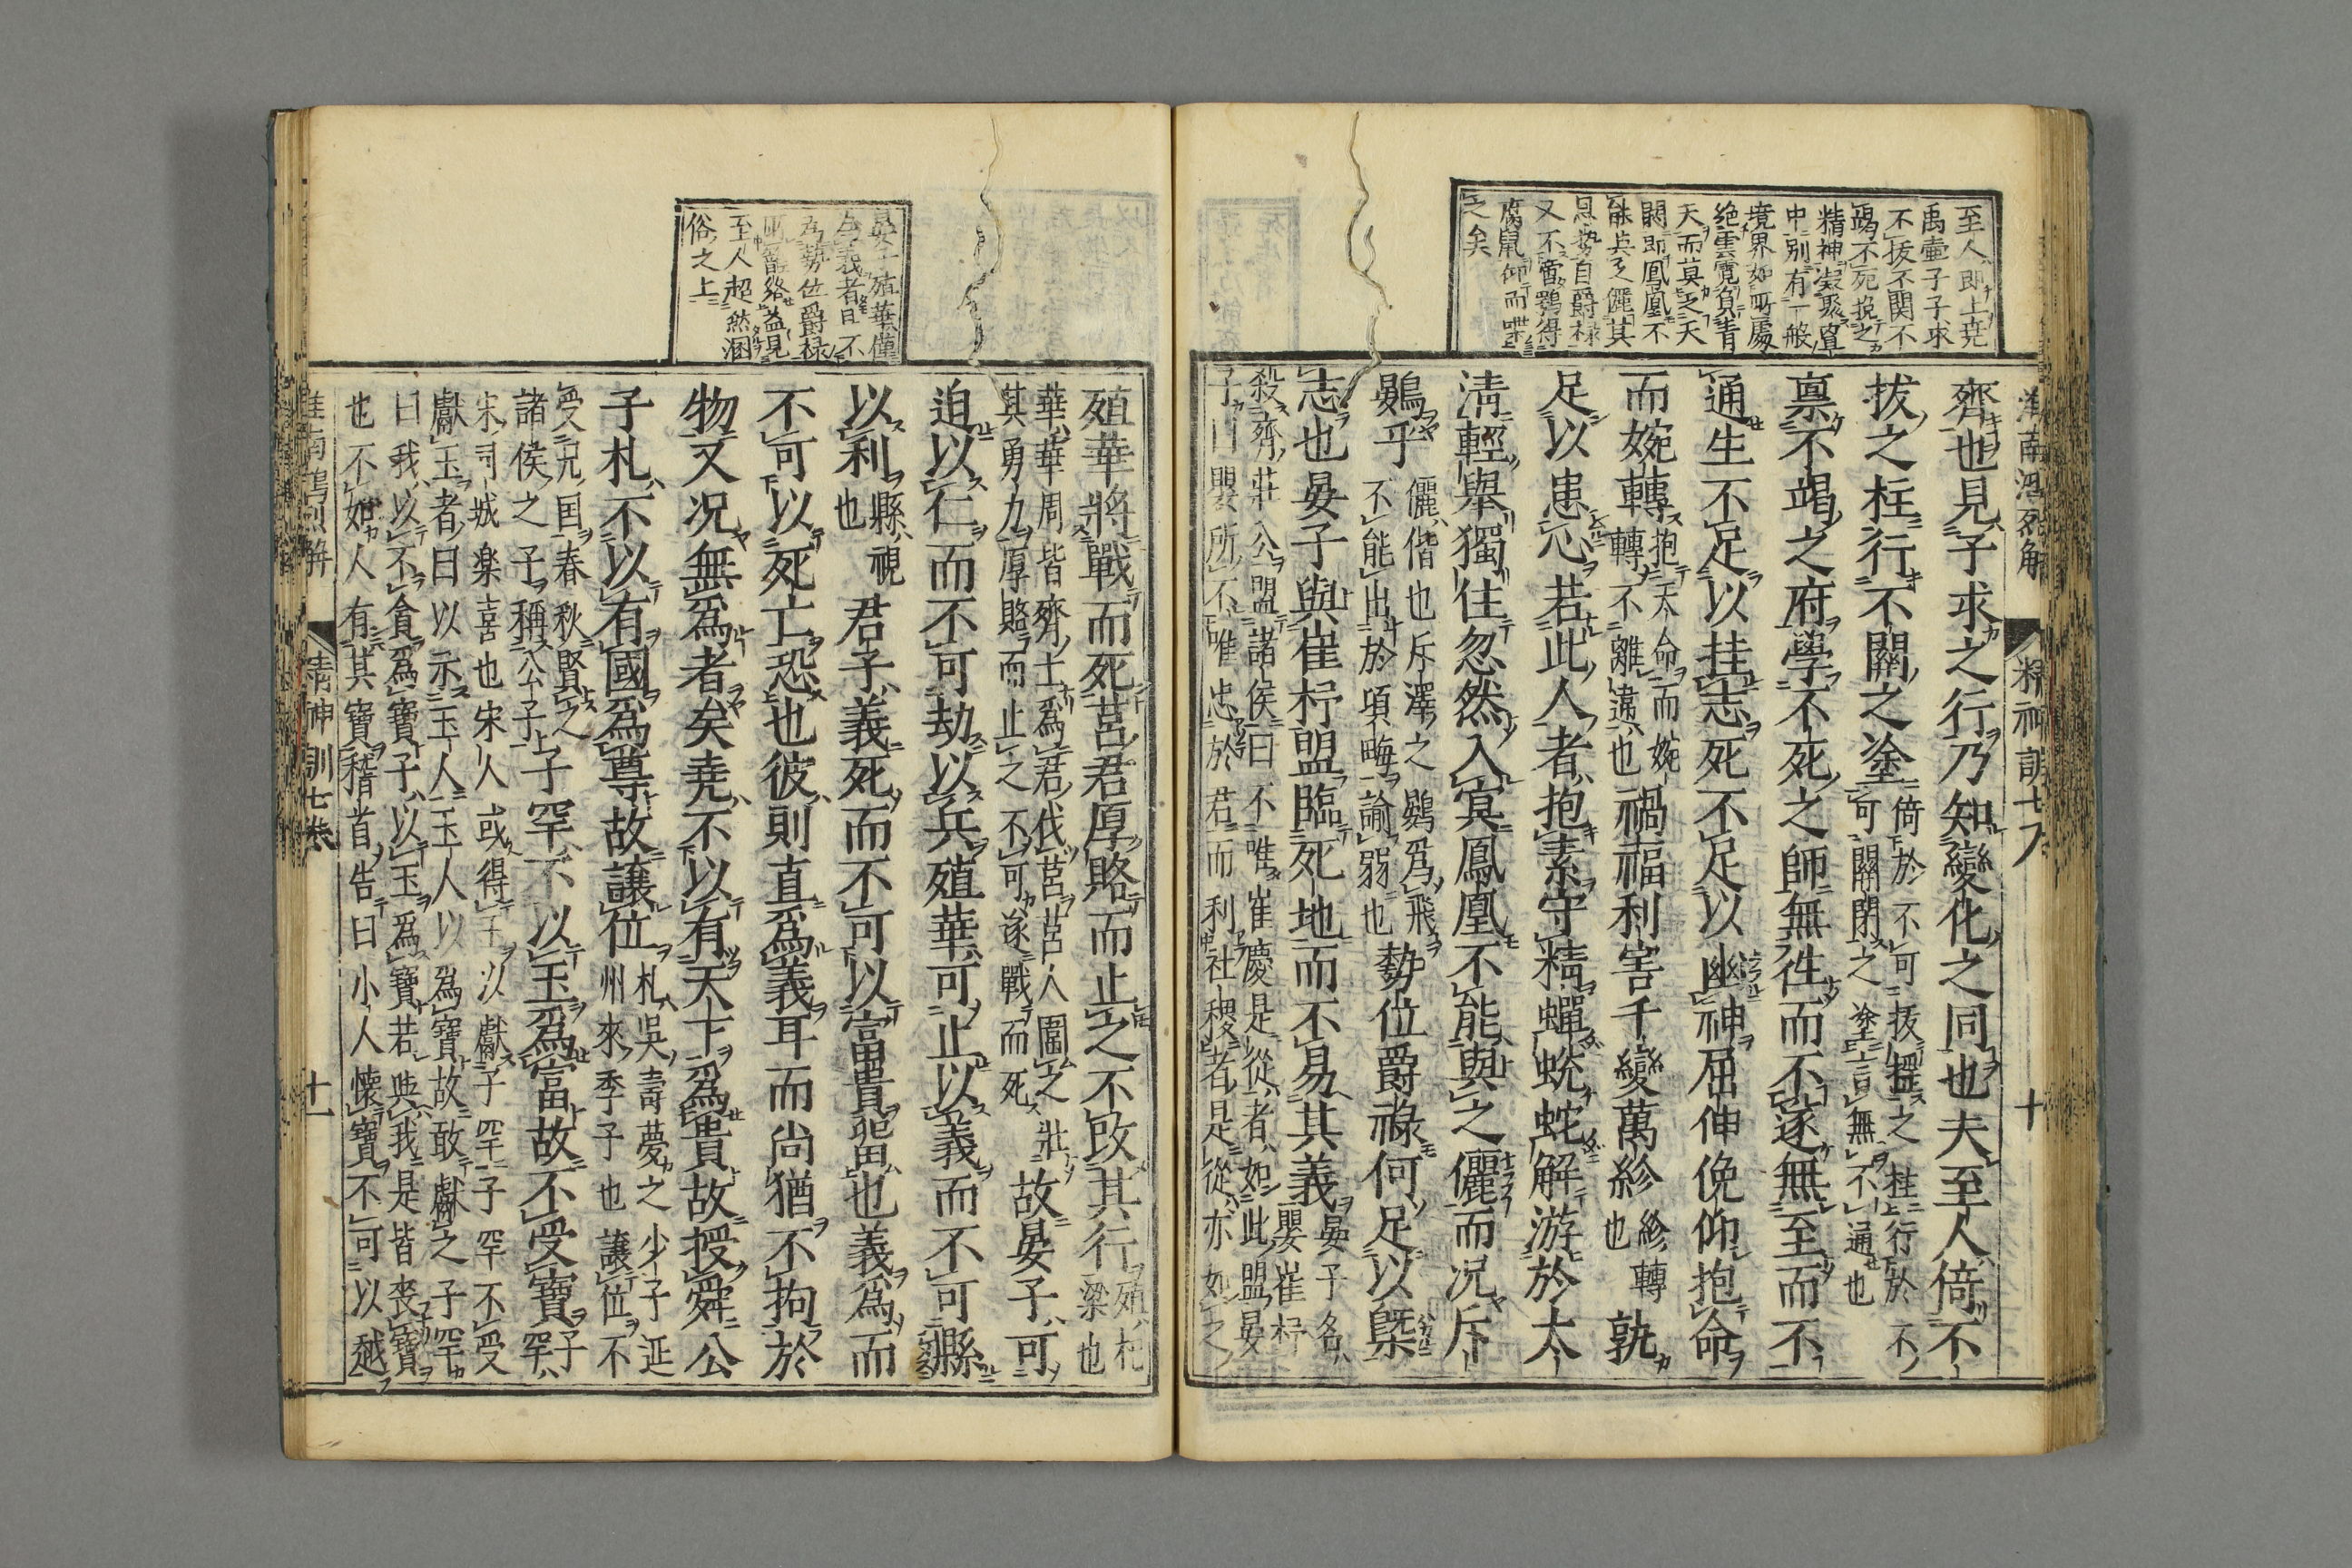 至人即上堯
禹壷子子求
不抜不関不
竭不死挽之
精神凝聚真
中別有一般
境界如所處
絶雲霓負青
天而莫之夭
閼即鳳凰不
能與之儷其
患勢自爵禄
又不啻鷃得
腐鼠仰而嚇
之矣
齊也見子求之行乃知變化之同也夫至人倚不
拔之柱行不關之塗倚於不可拔搖之柱行於不可關閉之塗言無不通也
禀不竭之府學不死之師無徃而不遂無至而不
通生不足以挂志死不足以幽神屈伸俛仰抱命
而婉轉抱天命而婉轉不離違也禍福利害千變萬紾紾轉也孰
足以患心若此人者抱素守精蟬蛻蛇解游於太
淸輕舉獨住忽然入冥鳳凰不能與之儷而况斥
鷃乎儷偕也斥澤之鷃爲飛不能出於頃畮諭弱也勢位爵祿何足以槩
志也晏子與崔杼盟臨死地而不易其義晏子名嬰崔杼
殺齊莊公盟諸侯曰不唯崔慶是從者如此盟晏
子曰嬰所不唯忠於君而利社稷者是從亦如之
殖華將戰而死莒君厚賂而止之不改其行殖杞梁也
華華周皆齊士爲君伐莒莒人圍之壯
其勇力厚賂而止之不可遂戰而死故晏子可
迫以仁而不可劫以兵殖華可止以義而不可縣
以利縣視也君子義死而不可以富貴畱也義爲而
不可以死亡恐也彼則直爲義耳而尚猶不拘於
物又况無爲者矣堯不以有天下爲貴故授舜公
子札不以有國爲尊故讓位札吳壽夢之少子延州來季子也讓位不
受兄国春秋賢之
諸侯之子稱公子子罕不以玉爲富故不受寶子罕
宋司城楽喜也宋人或得玉以獻子罕子罕不受
獻玉者曰以示玉人玉人以爲寶故敢獻之子罕
曰我以不貪爲寶子以玉爲寶若與我是皆喪寶
也不如人有其寶稽首告曰小人懷寶不可以越
淮南鴻烈解
精神訓七卷
十一
至人超然溷
俗之上